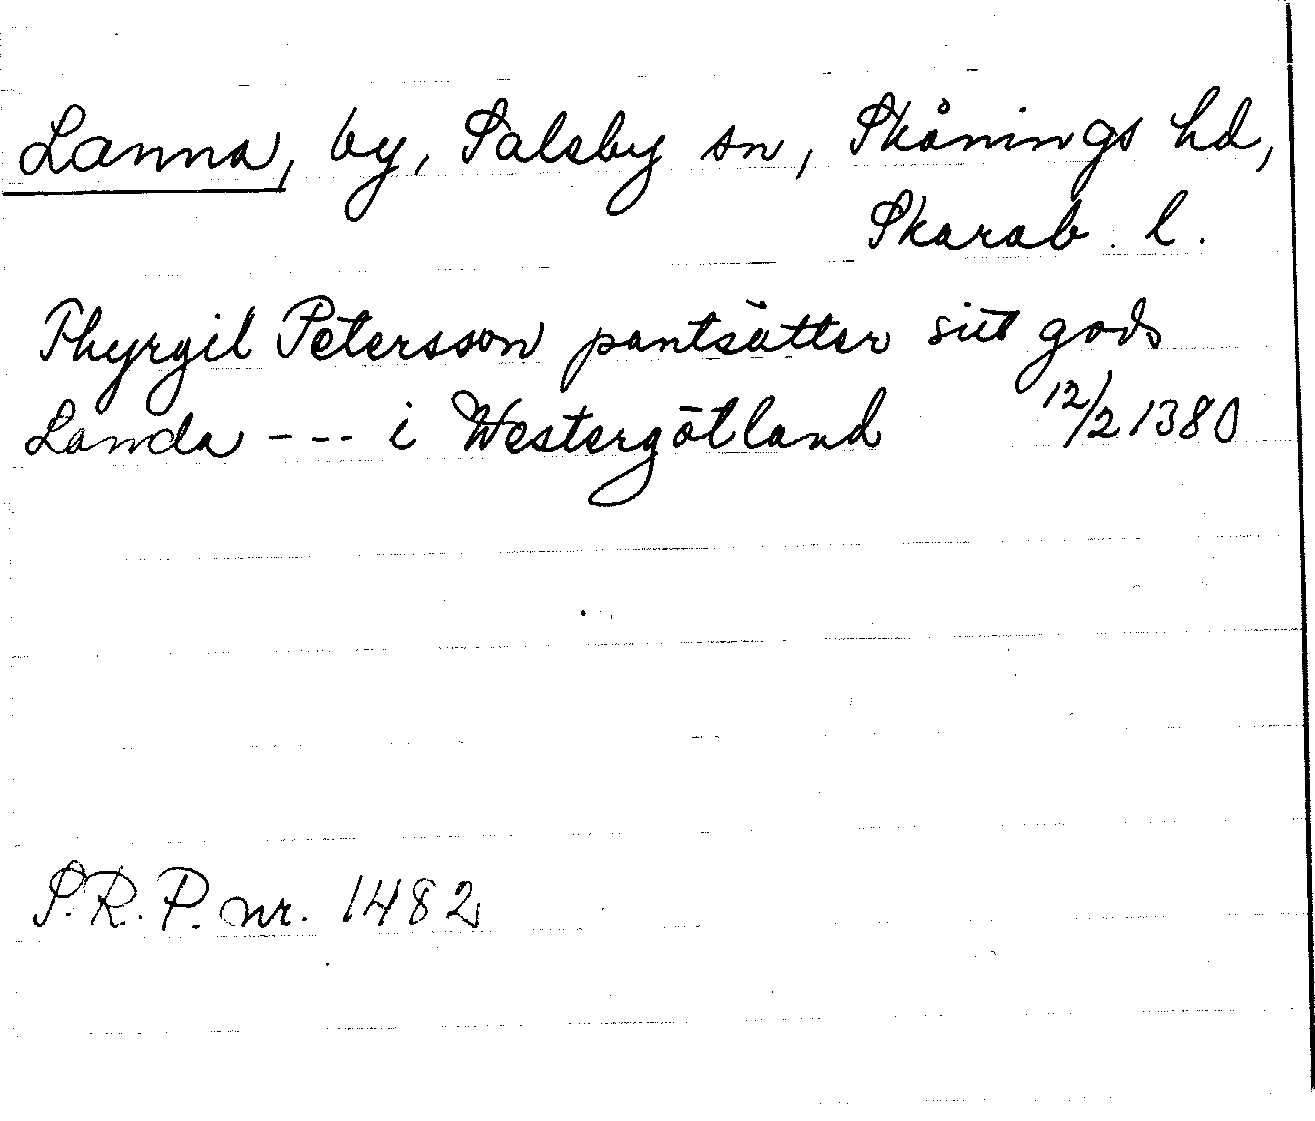 Lanna, by, Salsby sn, Skånings hd,
Skarab. l.
Thyrgil Petersson pantsätter sitt gods
Landa --- i Westergötland 12/2 1380
S.R.P. nr. 1482